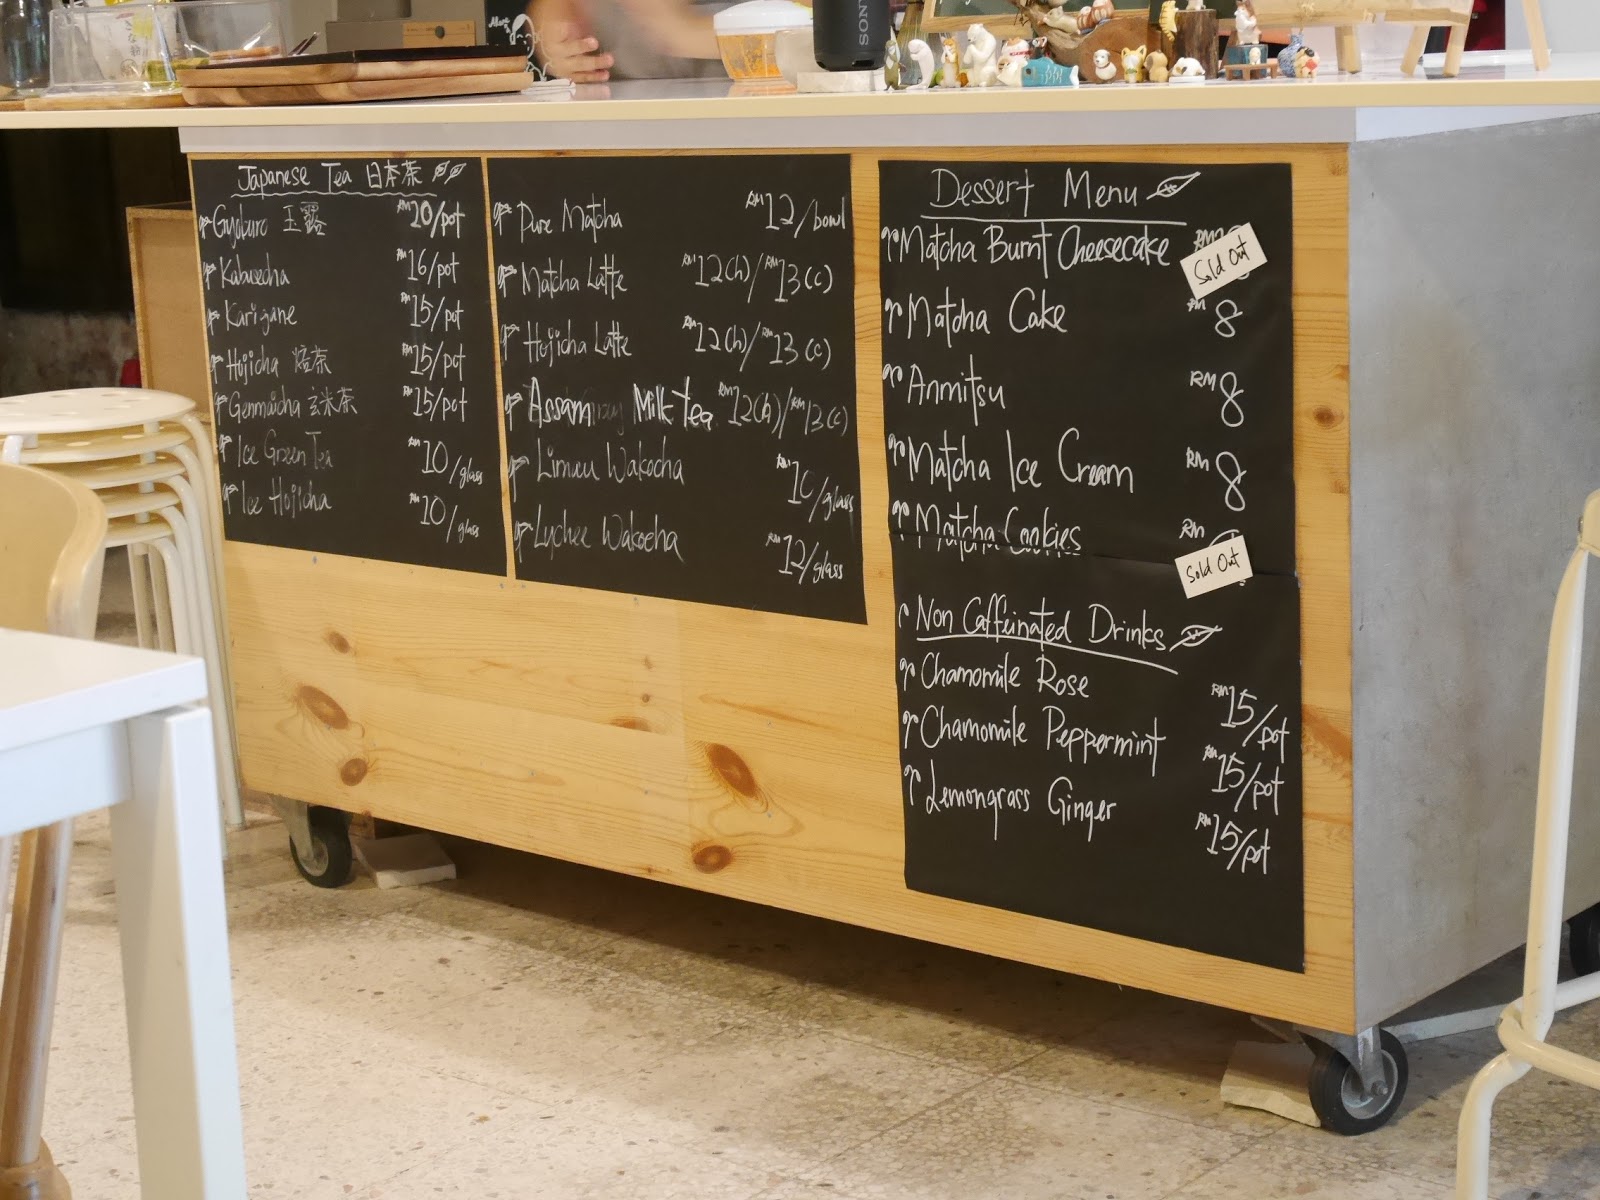 SONY
Japanese Tea 日本茶
Gyoburo 玉露 RM20/pot
Kabusecha RM16/pot
Karigane RM15/pot
Hojicha 焙茶 RM15/pot
Genmaicha 玄米茶 RM15/pot
Ice Green Tea RM10/glass
Ice Hojicha RM10/glass
Pure Matcha RM12/bowl
Matcha Latte RM12(h)/RM13(c)
Hojicha Latte RM12(h)/RM13(c)
Assam Milk Tea RM12(h)/RM13(c)
Wakocha RM10/glass
Lychee Wakocha RM12/glass
Dessert Menu
Matcha Burnt Cheesecake RM Sold Out
Matcha Cake RM8
Anmitsu RM8
Matcha Ice Cream RM8
Matcha Cookies RM
Sold Out
Non Caffeinated Drinks
Chamomile Rose RM15/pot
Chamomile Peppermint RM15/pot
Lemongrass Ginger RM15/pot